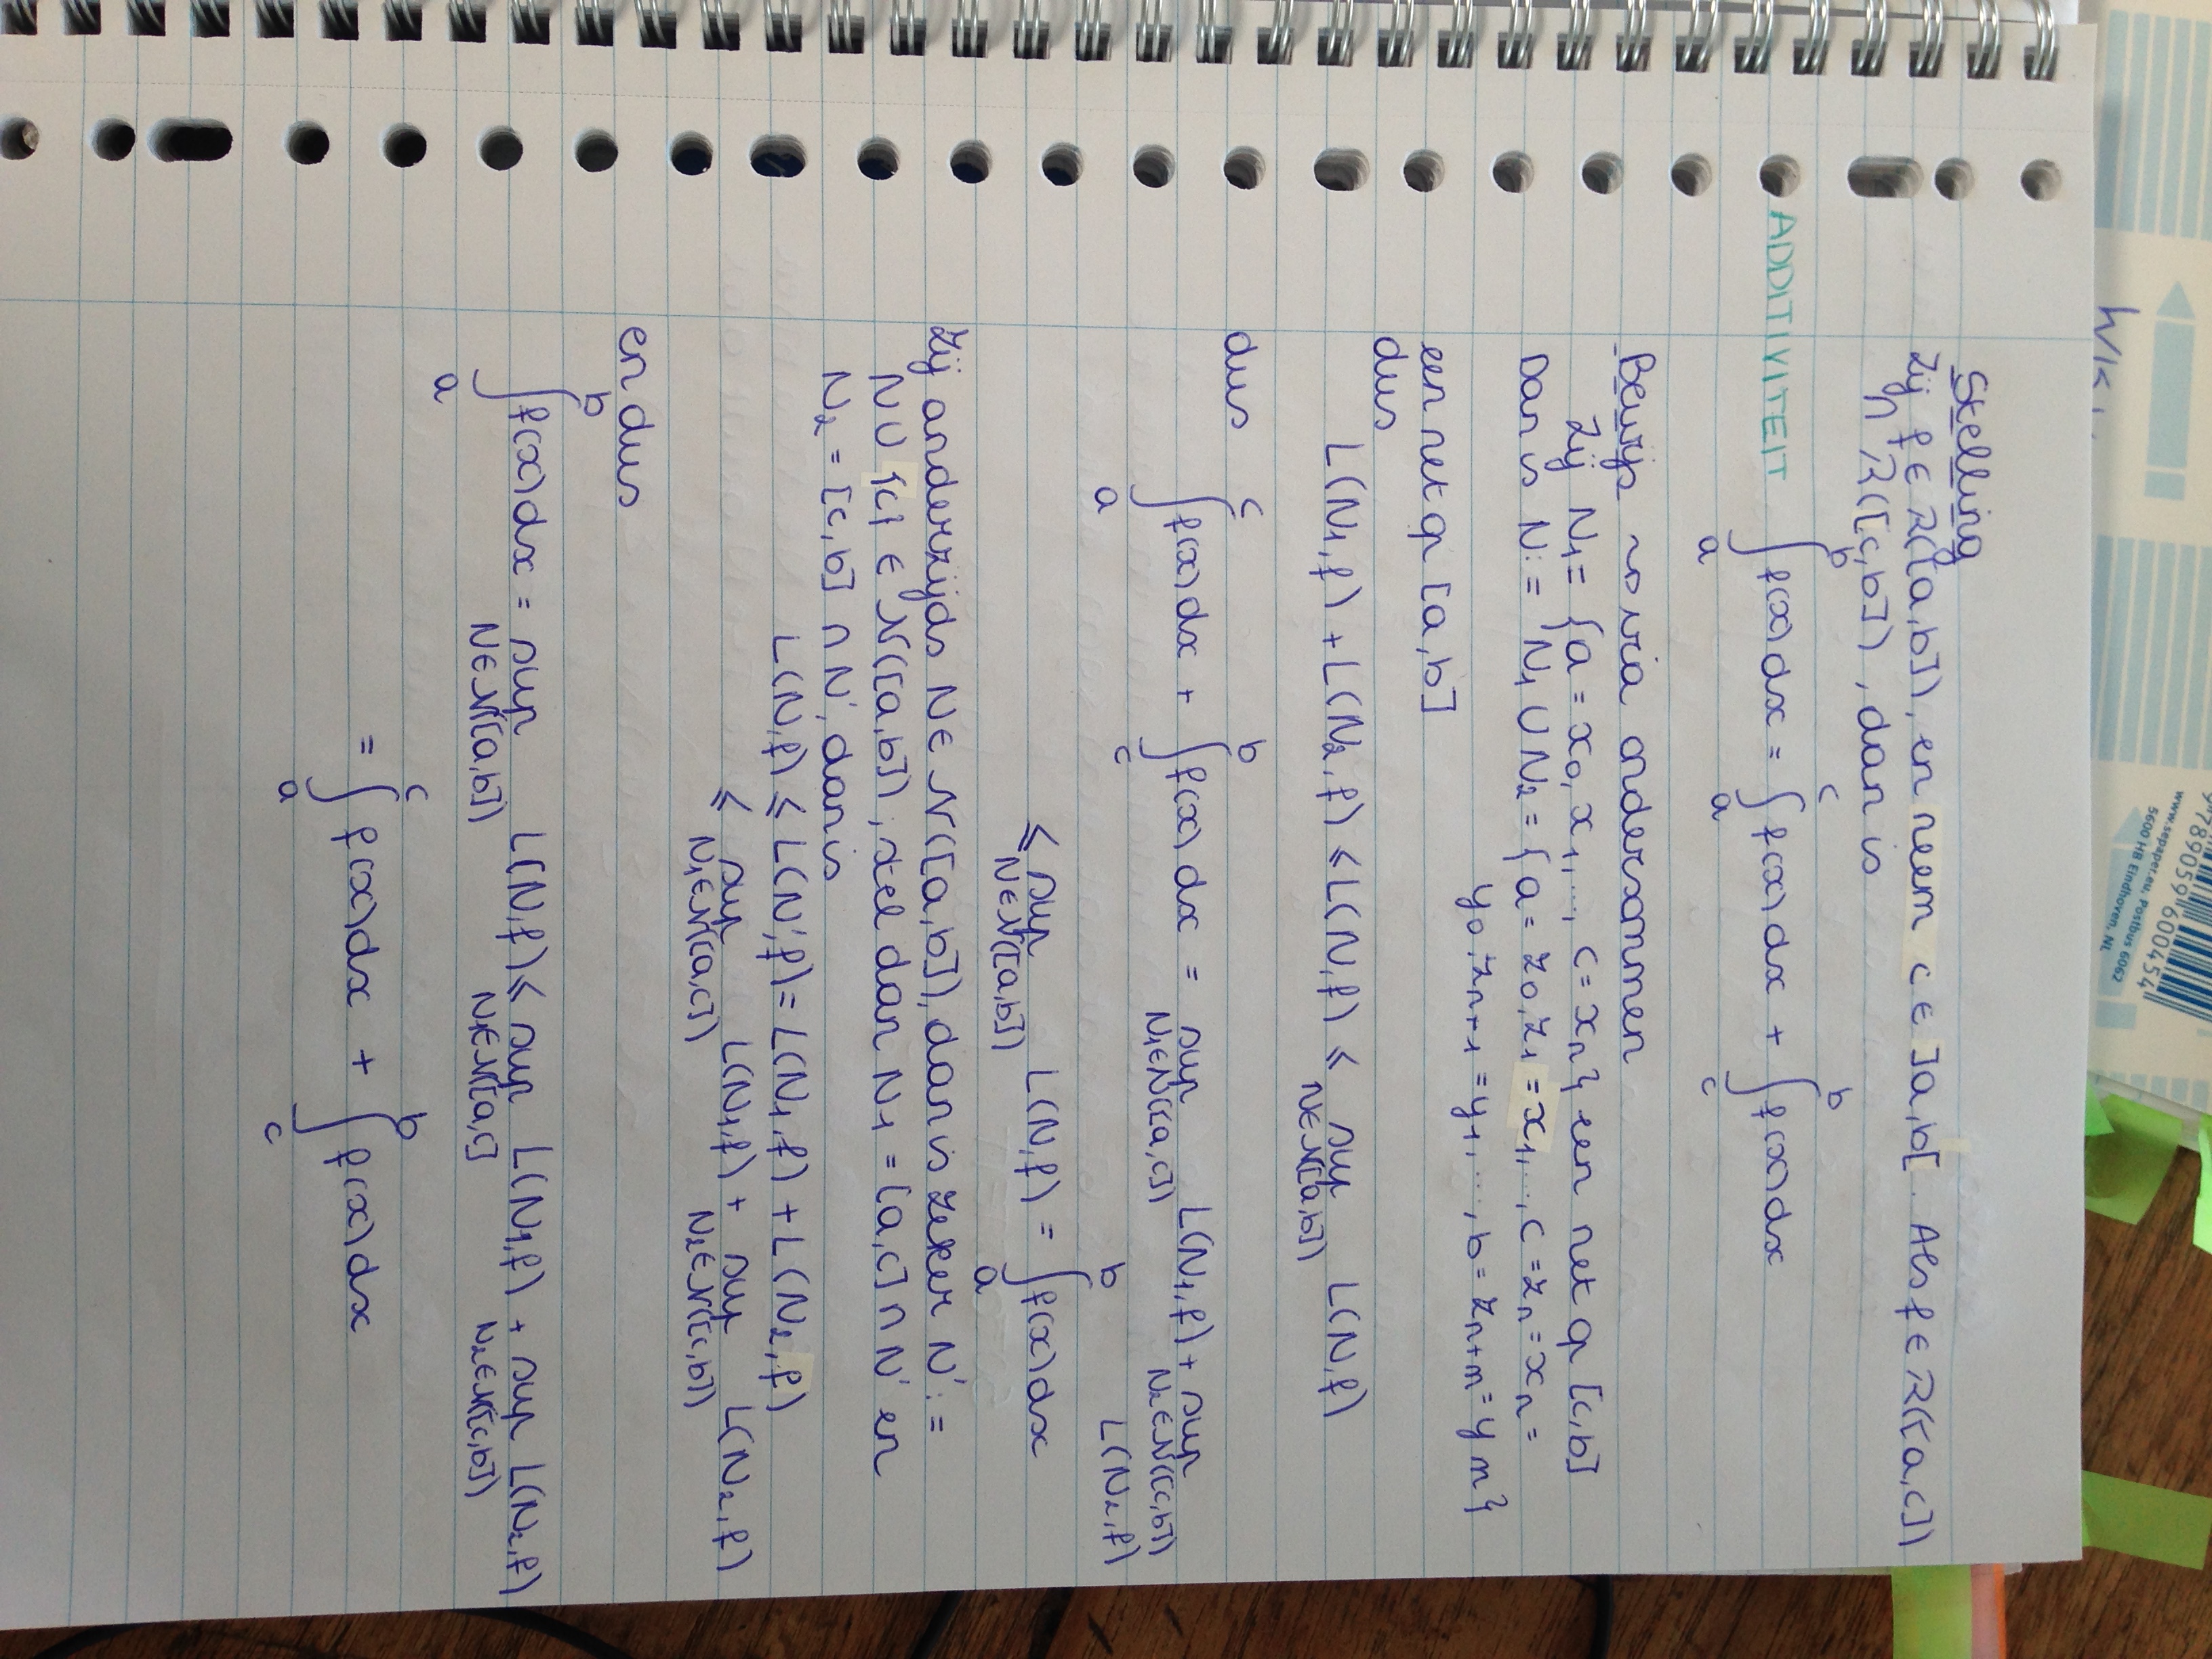 9789059 600454
www.sepaper.eu, Postbus 6062
5600 HB Eindhoven, NL
Stelling
Zij f ∈ R([a,b]), en neem c ∈ ]a,b[. Als f ∈ R([a,c])
∩ R([c,b]), dan is
ADDITIVITEIT ∫_a^b f(x)dx = ∫_a^c f(x)dx + ∫_c^b f(x)dx
Bewijs ⇝ via ondersommen
Zij N₁ = {a = x₀, x₁, ..., c = xₙ} een net op [c,b]
Dan is N := N₁ ∪ N₂ = {a = z₀, z₁ = x₁, ..., c = zₙ = xₙ =
y₀, zₙ₊₁ = y₁, ..., b = zₙ₊ₘ = yₘ}
een net op [a,b]
dus
L(N₁,f) + L(N₂,f) ≤ L(N,f) ≤ sup_{N∈N([a,b])} L(N,f)
dus ∫_a^c f(x)dx + ∫_c^b f(x)dx = sup_{N₁∈N([a,c])} L(N₁,f) + sup_{N₂∈N([c,b])}
L(N₂,f)
≤ sup_{N∈N([a,b])} L(N,f) = ∫_a^b f(x)dx
Zij anderzijds N ∈ N([a,b]), dan is zeker N' :=
N ∪ {c} ∈ N([a,b]), stel dan N₁ = [a,c] ∩ N' en
N₂ = [c,b] ∩ N', dan is
L(N,f) ≤ L(N',f) = L(N₁,f) + L(N₂,f)
≤ sup_{N₁∈N([a,c])} L(N₁,f) + sup_{N₂∈N([c,b])} L(N₂,f)
en dus
∫_a^b f(x)dx = sup_{N∈N([a,b])} L(N,f) ≤ sup_{N₁∈N[a,c]} L(N₁,f) + sup_{N₂∈N([c,b])} L(N₂,f)
= ∫_a^c f(x)dx + ∫_c^b f(x)dx